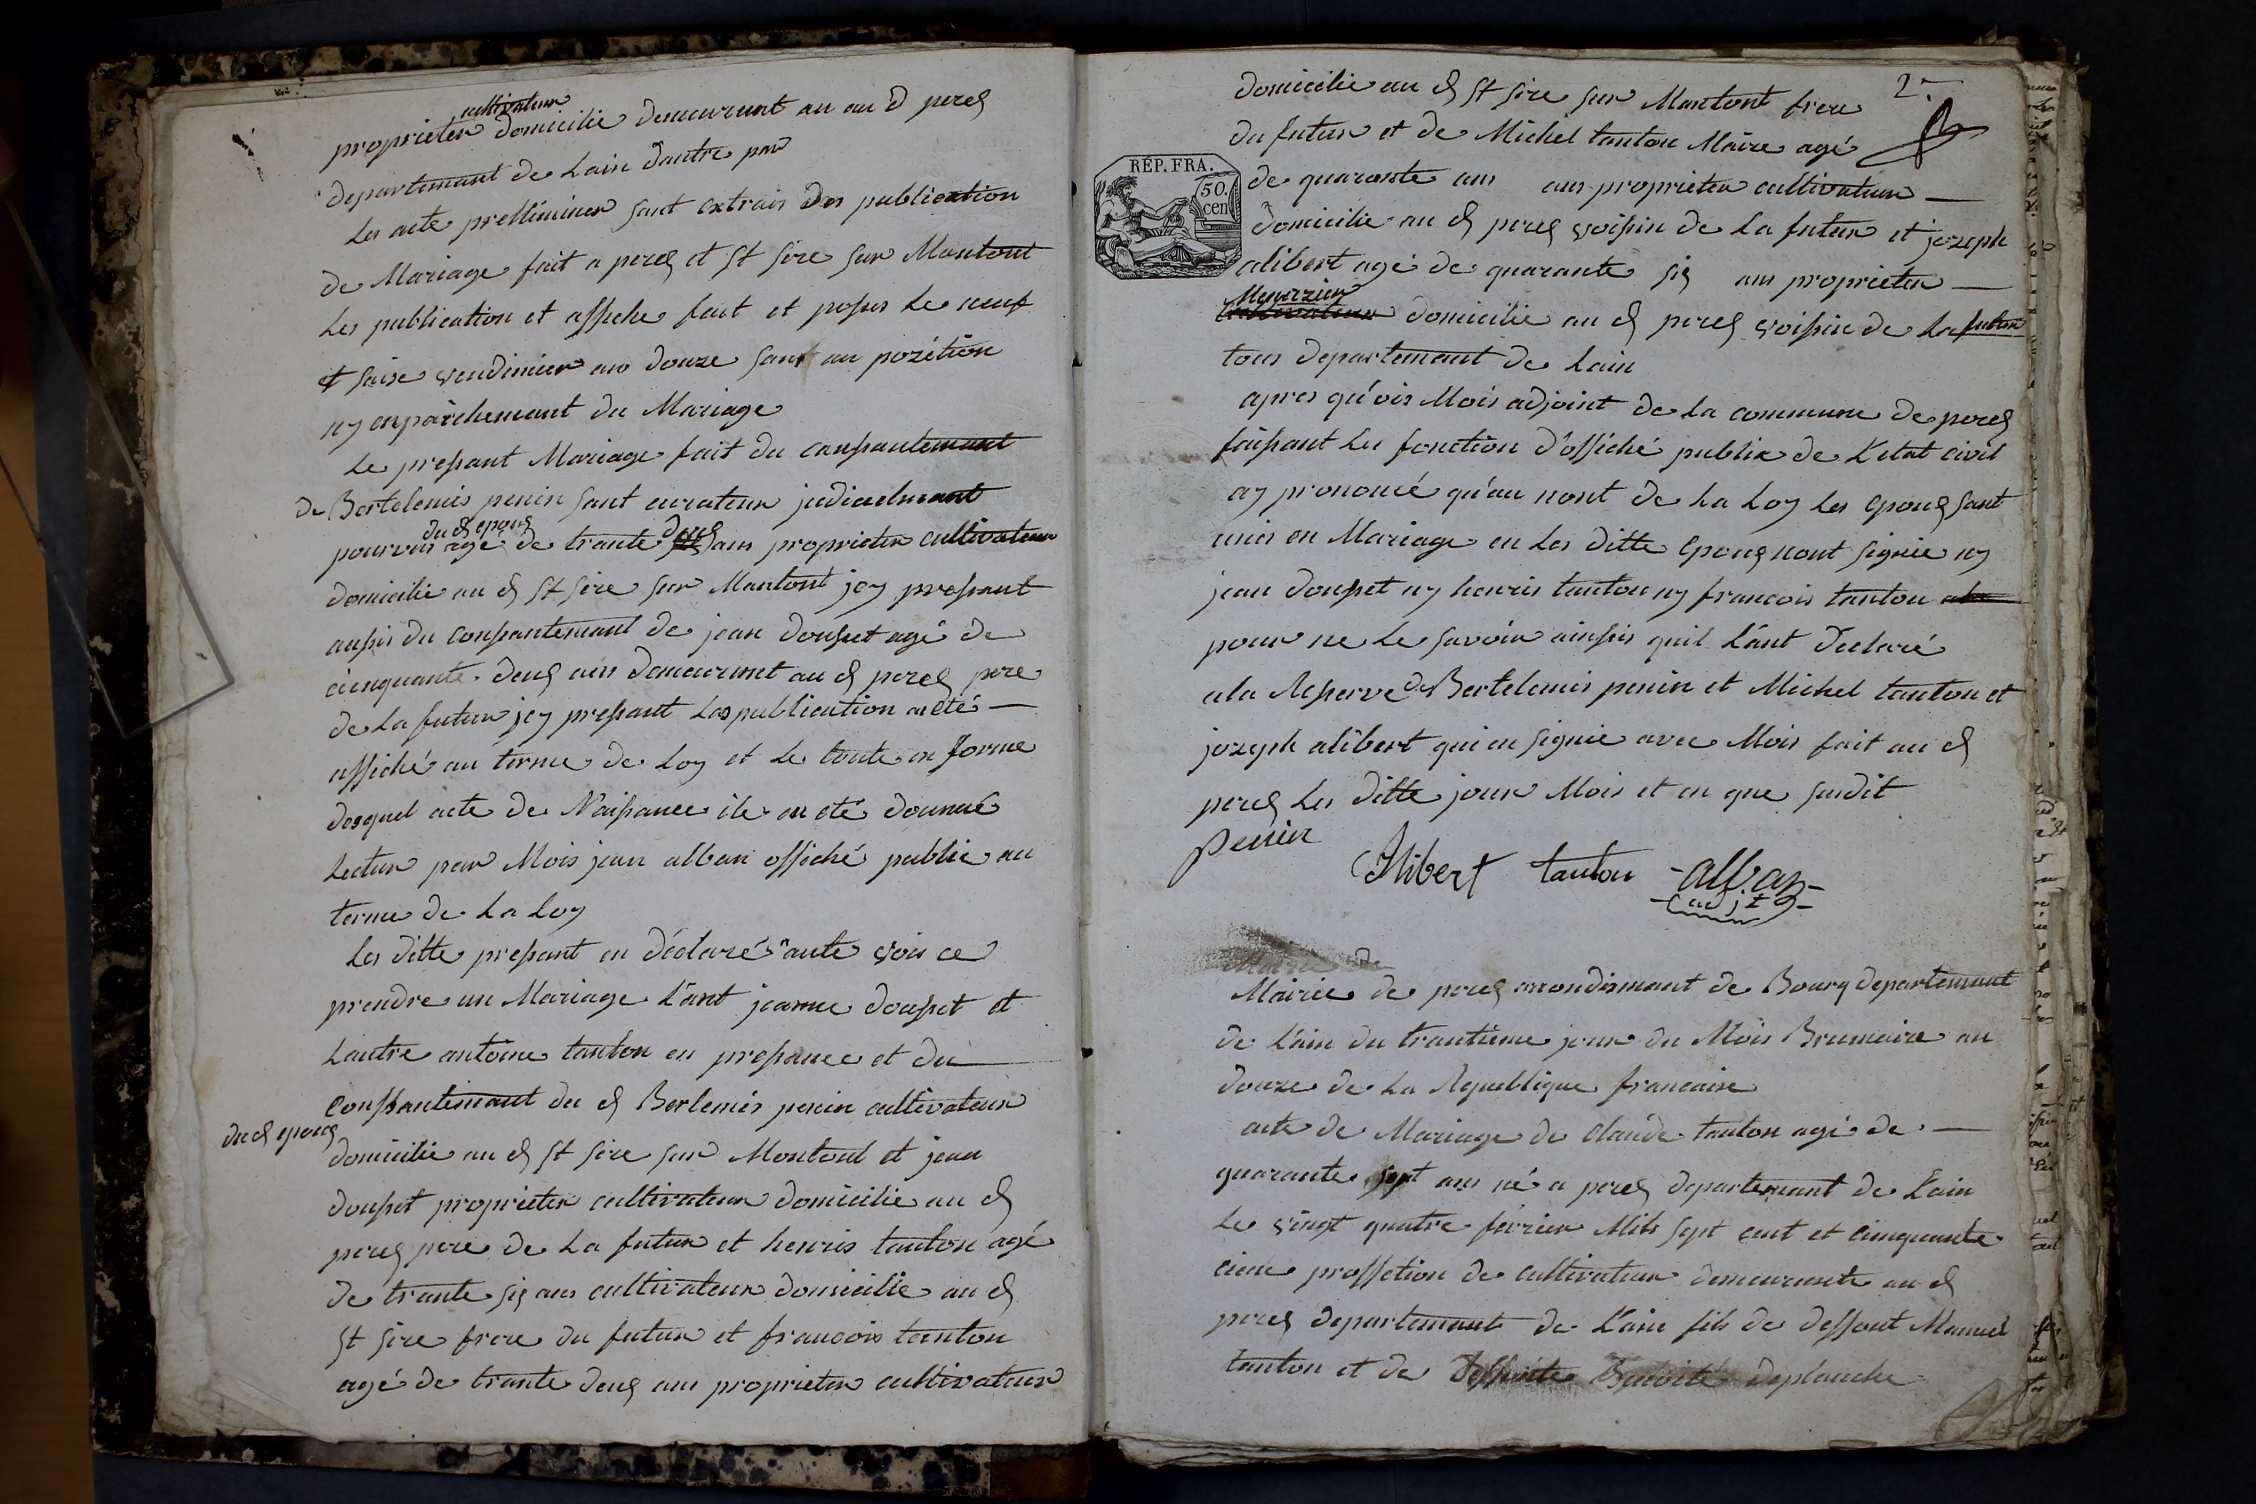 cultivateur
proprieter domicilie demeurant au au d perex
departemant de Lain dautre par
Les acte prelliminer sont extrais des publication
de Mariage fait a perex et St sire sur Mantont
Les publication et affiche fait et poser Le neuf
et saise vendimier an douze sant au pozétion
ny enpaichemant du Mariage
Le pressant Mariage fait du conssantemant
de Bertelemis penin sant curateur judicielmant
du d epoux
pourvus agé de trante deux ans proprieter cultivateur
domicilie au d St sire sur Mantont jcy pressant
aussis du conssantemant de jean dousset agé de
cinquante deux ans demeurant au d perex pere
de La futur jcy pressant Les publication a eté
affiché au terme de Loy et Le toute en forme
desquel acte de Naissance ile on eté donnué
Lectur par Mois jean alban offiché public au
terme de La Loy
Les ditte pressant on déclaré aute vois ce
prendre en Mariage L'ant jeanne dousset et
Lautre antoine tanton en pressance et du
conssantemant du d Bertemis penin cultivateur
du d epoux
domicilie au d St sire sur Montont et jean
dousset proprieter cultivateur domicilie au d
perex pere de La futur et henris tanton agé
de trante six ans cultivateur domicilie au d
St sire frere du futur et francois tanton
agé de trante deux ans proprieter cultivateur
2
domicilie au d St sire sur Mantont frere
du futur et de Michel tanton Maire agé
RÉP. FRA.
50
cen
de quarante ans ans proprieter cultivateur
domicilie au d perex voissin de La futur et jozeph
alibert agé de quarante six ans proprieter
domicilie au d perex voissin de La futur
tous departemant de Lain
apres qu'ois Mois adjoint de La commune de perex
faissant Les fonction d'officié publix de L'etat civil
ay prononcé qu'au nont de La Loy Les epoux sant
unis en Mariage en Les ditte epoux nont signie ny
jean dousset ny henris tanton ny francois tanton
pour ne Le savoir ainssis quil L'ant declaré
ala Reserve de Bertelemis penin et Michel tanton et
jozeph alibert qui on signie avec Mois fait au d
perex Les ditte jour Mois et an que susdit
Penin
Alibert tanton -alban-
adjt
Mairie de
Mairie de perex arrondismant de Bourg departemant
de L'ain du trantieme jour du Mois Brumaire an
douze de La Republique francaise
acte de Mariage de Claude tanton agé de
quarante sept ans né a perex departemant de L'ain
Le vingt quatre fevrier Mils sept cent et cinquante
cienc proffetion de cultivateur demeurante au d
perex departemant de L'ain fils de deffont Manuel
tanton et de deffunte deplanche